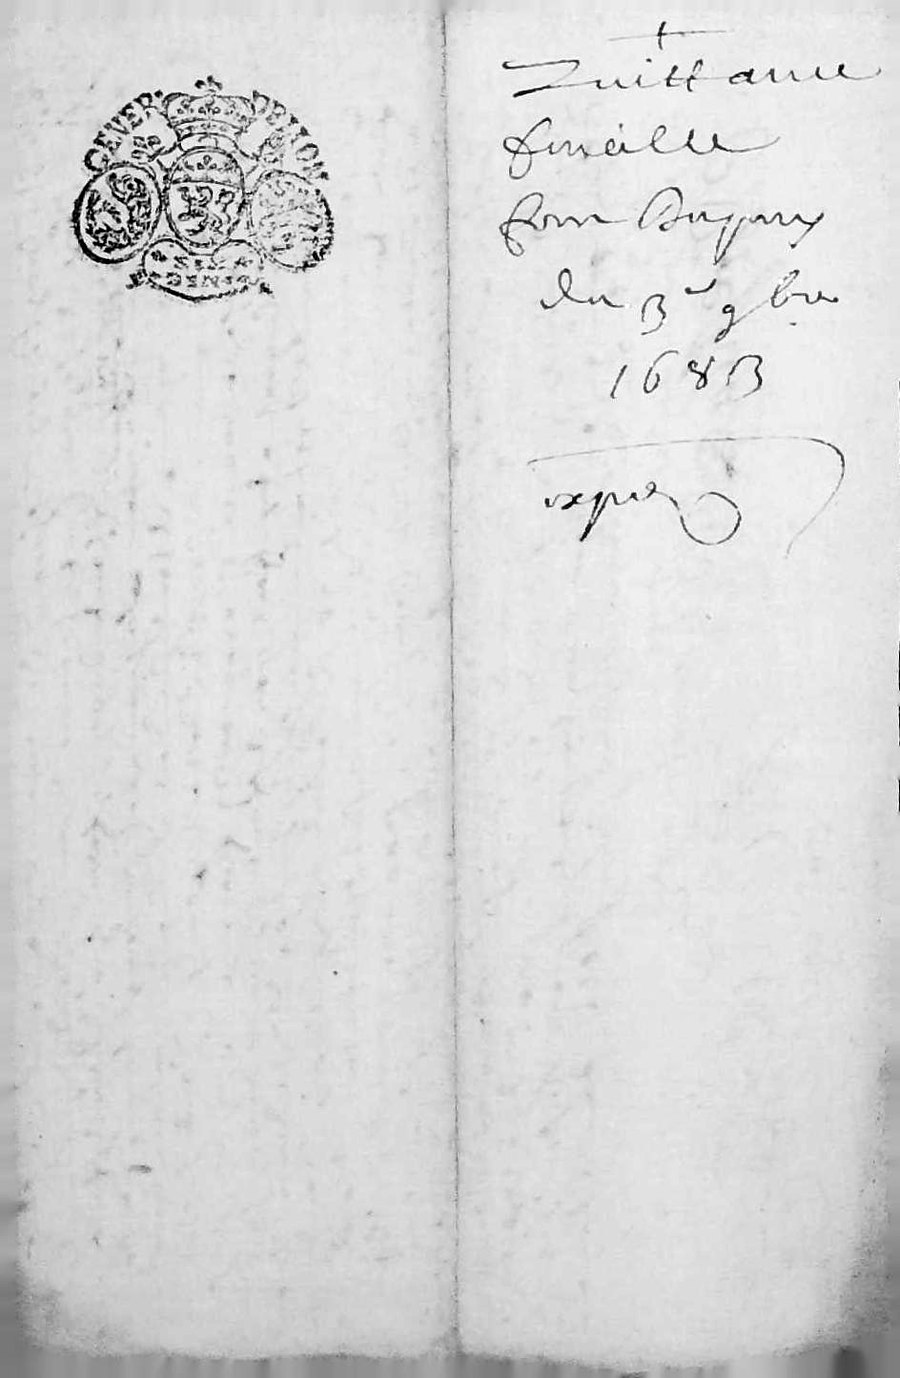 GENER · DE MON
SIX
DEN
Quittance
finalle
pour Dupuy
du 3e 9bre
1683
expé